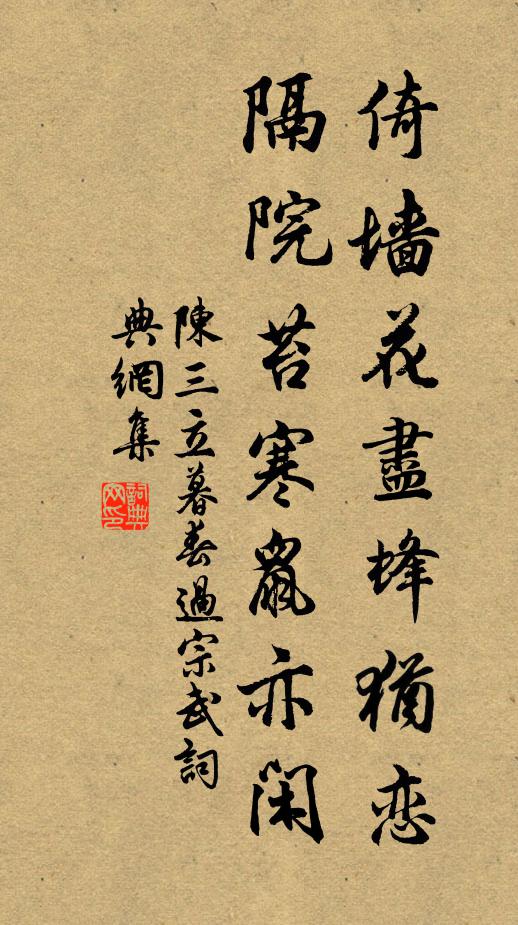 倚墙花盡蜂猶恋
隔院苔寒鼠亦闲
陳三立暮春過宗武詞
典網集
詞典
网印